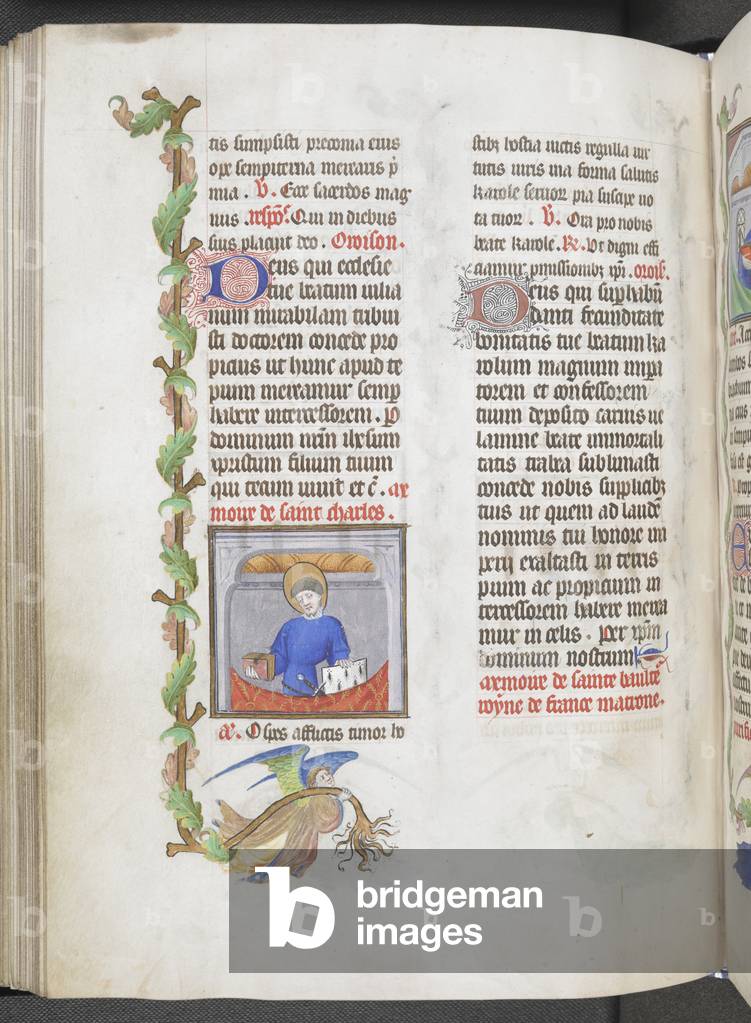 tis sumpsisti preconia eius
ope sempiterna mereatis p̄
mia . V̄. Ecce sacerdos mag
nus . respōs. Qui in diebus
suis placuit deo . Oroison.
Deus qui ecclesie
tue beatum iulia
num mirabilem tribui
sti doctorem concede pro
picius ut hunc apud te
pium mereamur semp̄
habere intercessorem . P
dominum nr̄m ih̄esum
xp̄istum filium tuum
qui tecum uiuit et c̄ . ax
moire de saint charles .
O spes afflictis timor ho
stibz hostia uictis regula uir
tutis iuris uia forma salutis
karole seruor pia suscipe uo
ta tuor . V̄. Ora pro nobis
beate karole . R̄. Vt digni effi
ciamur pmissionibz xp̄i . orois̄.
Deus qui suphabū
danti fecunditate
bonitatis tue beatum ka
rolum magnum impa
torem et confessorem
tuum deposito carnis ue
lamine beate immortali
tatis trabea sublimasti
concede nobis supplicibz
tuis ut quem ad laudē
nominis tui honore im
perij exaltasti in terris
pium ac propicium in
tercessorem habere merea
mur in celis . Per xp̄m
dominum nostrum
axmoire de sainte baulte
wyne de france matrone .
b bridgeman
images